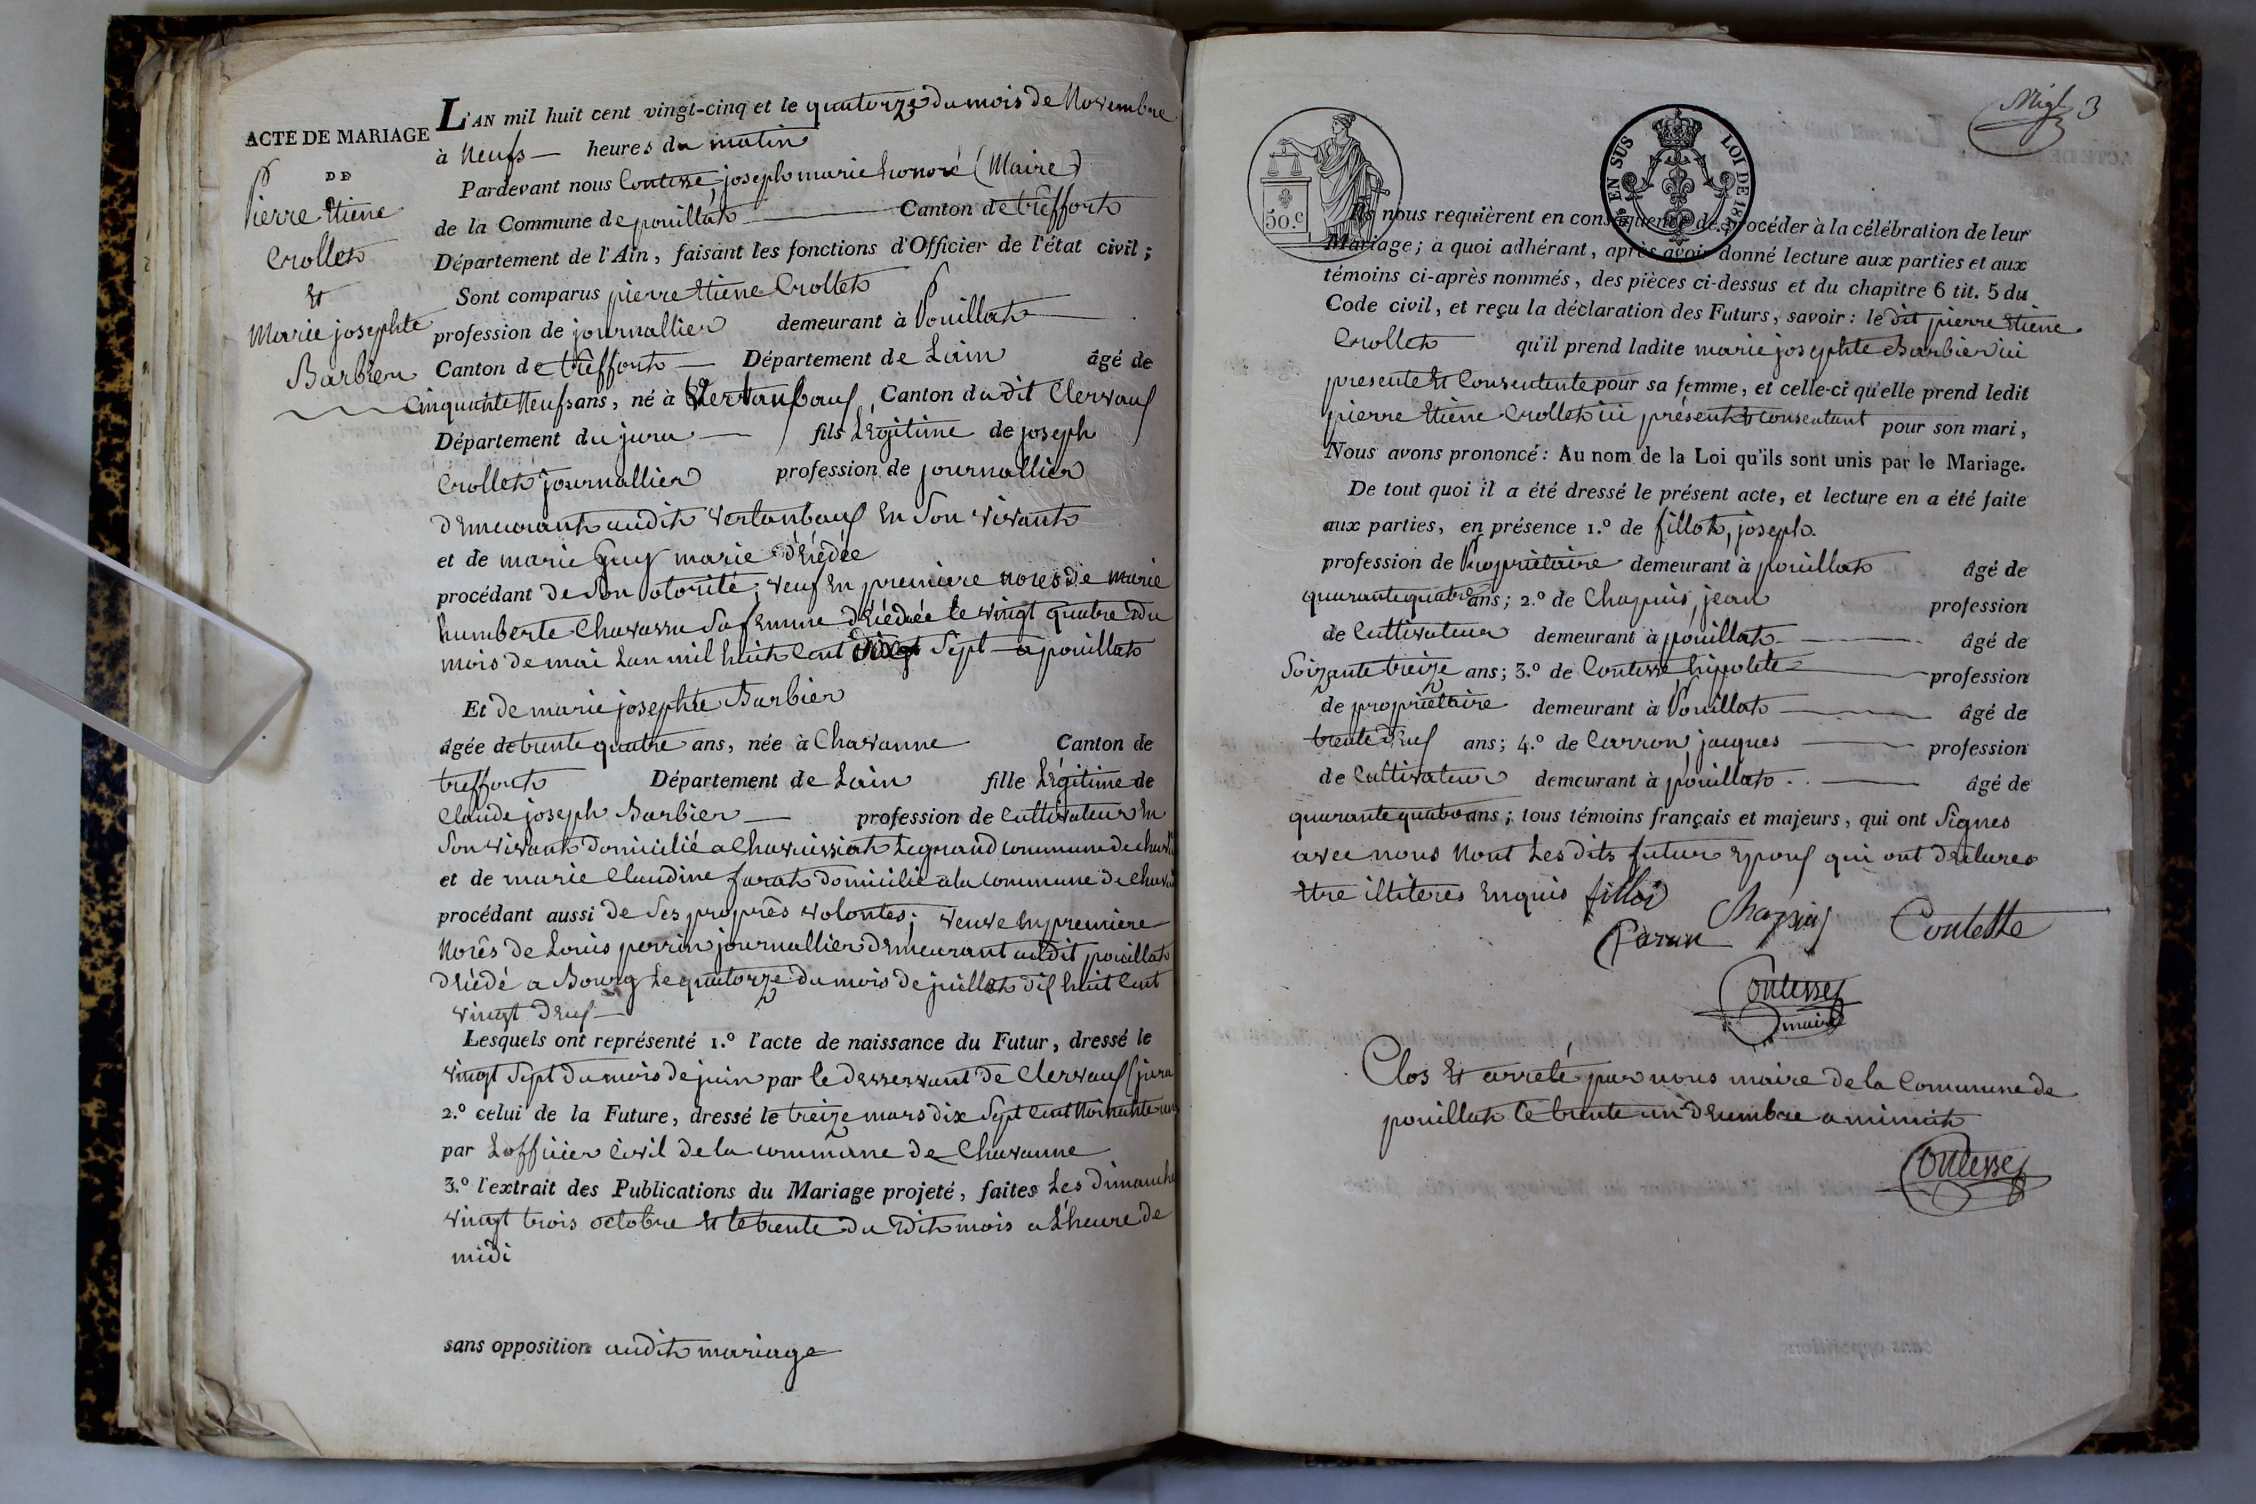 ACTE DE MARIAGE
DE
Pierre Etiene
Crollet
Et
Marie josephte
Barbier
L'AN mil huit cent vingt-cinq et le quatorze du mois de Novembre
à Neufs heures du matin
Pardevant nous Contesse, joseph marie honoré (Maire)
de la Commune de pouillat Canton de treffort
Département de l'Ain, faisant les fonctions d'Officier de l'état civil;
Sont comparus pierre Etiene Crollet
profession de journallier demeurant à Pouillat
Canton de treffort Département de Lain âgé de
Cinquante Neufs ans, né à Canton du dit Clervaux
Département du jura fils Légitime de joseph
Crollet journallier profession de journallier
demeurant audit vertanbaux En Son vivant
et de marie Guy marie déçédée
procédant de Son otorité; veuf En premiere noces de marie
humberte Chavassu Sa femme déçédée le vingt quatre du
mois de mai Lan mil huit Cent Sept a pouillat
Et de marie josephte Barbier
âgée de trente quatre ans, née à Chavanne Canton de
treffort Département de Lain fille Légitime de
Claude joseph Barbier profession de Cultivateur En
Son vivant domicilié a Chavuissiat Legrand commune de
et de marie Claudine farat domicilié a la commune de
procédant aussi de Ses proprês volontes; veuve En premiere
Nocês de Louis perrin journallier demeurant audit pouillat
déçédé a Bourg Le quatorze du mois de juillet dix huit Cent
vingt deux
Lesquels ont représenté 1.º l'acte de naissance du Futur, dressé le
vingt Sept du mois de juin par le desservant de Clervaux (jura
2.º celui de la Future, dressé le treize mars dix Sept Cent Nonante un
par Lofficier Civil de la commune de Chavanne
3.º l'extrait des Publications du Mariage projeté, faites Les dimanche
vingt trois octobre Et le trente du dit mois a L'heure de
midi
sans opposition audit mariage
3
50.c
EN SUS LOI DE
Ils nous requièrent en conséquence de procéder à la célébration de leur
Mariage; à quoi adhérant, après avoir donné lecture aux parties et aux
témoins ci-après nommés, des pièces ci-dessus et du chapitre 6 tit. 5 du
Code civil, et reçu la déclaration des Futurs, savoir: le dit pierre Etiene
Crollet qu'il prend ladite marie josephte Barbier ici
presente Et Consentente pour sa femme, et celle-ci qu'elle prend ledit
pierre Etiene Crollet ici présent Et consentant pour son mari,
Nous avons prononcé: Au nom de la Loi qu'ils sont unis par le Mariage.
De tout quoi il a été dressé le présent acte, et lecture en a été faite
aux parties, en présence 1.º de fillot, joseph
profession de Propriétaire demeurant à pouillat âgé de
quarante quatre ans; 2.º de Chapuis, jean profession
de Cultivateur demeurant à pouillat âgé de
Soizante treize ans; 3.º de Contesse, hippolete profession
de propriétaire demeurant à Pouillat âgé de
trente deux ans; 4.º de Carron, jacques profession
de Cultivateur demeurant à pouillat âgé de
quarante quatre ans; tous témoins français et majeurs, qui ont Signes
avec nous Nont Les dits futur Epoux qui ont declares
Etre illiteres Enquis fillot
Chapuis Contesse
Caron
Contesse
maire
Clos Et arreté par nous maire de la Commune de
pouillat Le trente un decembre a minuit
Contesse